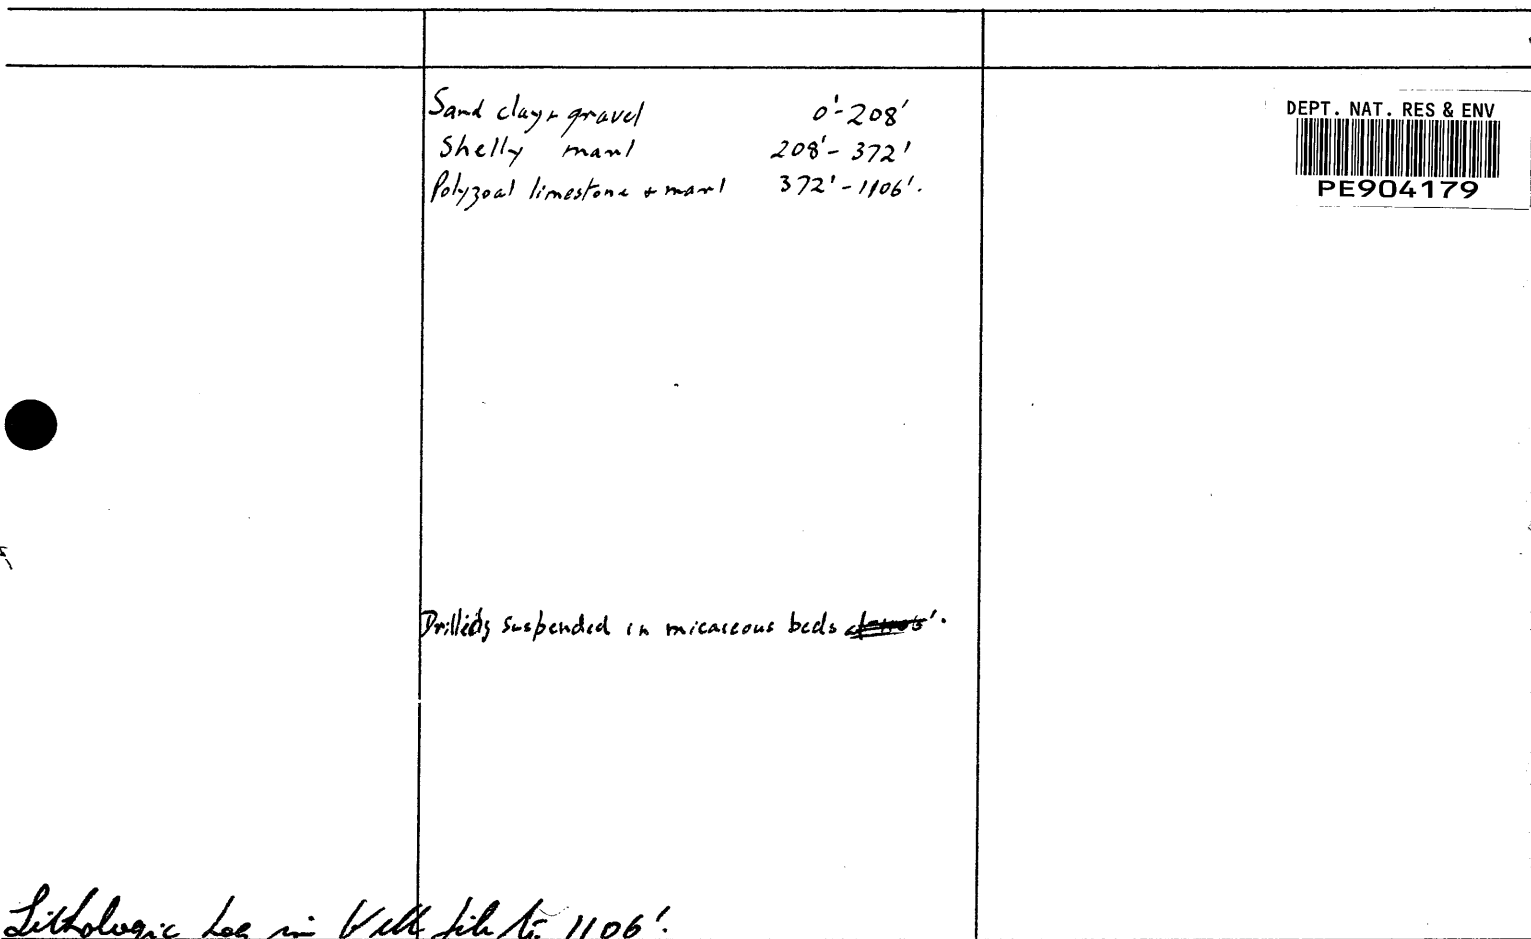 Sand clay + gravel 0'-208'
Shelly marl 208'-372'
Polyzoal limestone + marl 372'-1106'.
DEPT. NAT. RES & ENV
PE904179
Drilling suspended in micaceous beds
Lithologic Log in Well file to 1106'.